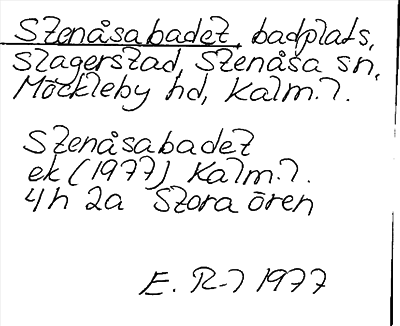 Stenåsabadet, badplats,
Slagerstad, Stenåsa sn,
Möckleby hd, Kalm. l.
Stenåsabadet
ek (1977) Kalm. l.
4h 2a Stora ören
E. R-l 1977